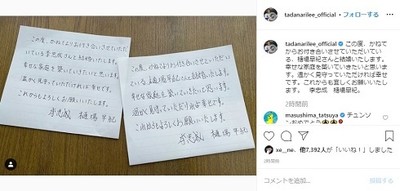 この度、かねてよりお付き合いさせていただ
いている李忠成さんと結婚いたします。
幸せな家庭を築いていきたいと思います。
温かく見守っていただければ幸せです。
これからもよろしくお願いいたします。
李忠成 樋場早紀
この度、かねてからお付き合いさせていただいて
いる樋場早紀さんと結婚します。
幸せな家庭を築いていきたいと思います。
温かく見守っていただければ幸せです。
これからもよろしくお願いします。
李忠成 樋場早紀
tadanarilee_official • フォローする
tadanarilee_official この度、かねて
からお付き合いさせていただいてい
る、樋場早紀さんと結婚します。
幸せな家庭を築いていきたいと思いま
す。温かく見守っていただければ幸せで
す。これからも宜しくお願いします。
李忠成 樋場早紀。
2時間前
masushima_tatsuya チュンソ
xe__ne、他7,392人が「いいね！」しました